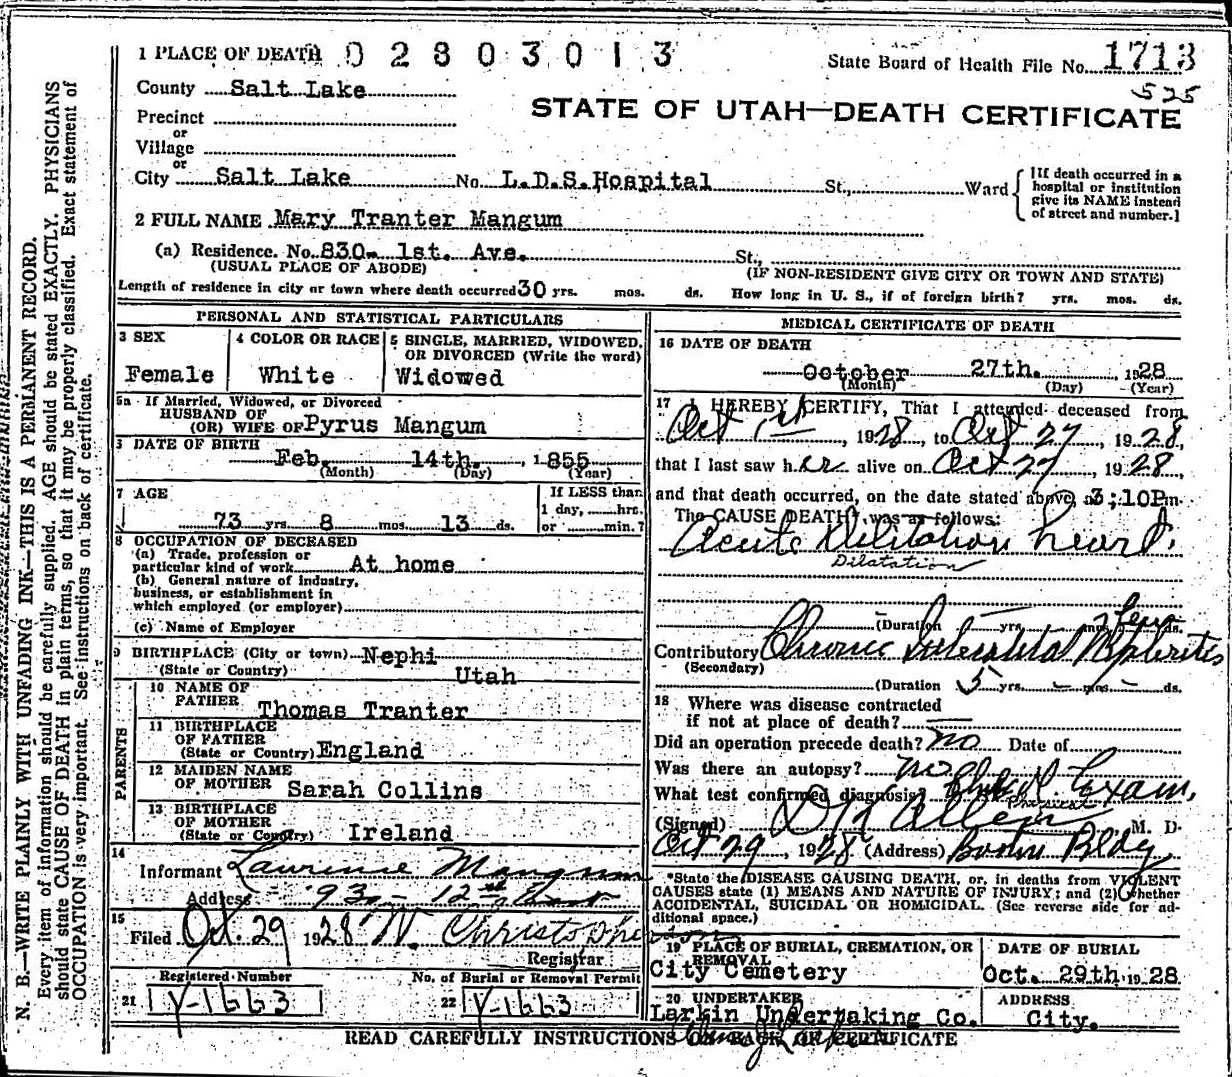 1 PLACE OF DEATH 0 2 8 0 3 0 1 3
State Board of Health File No. 1713
525
County Salt Lake
STATE OF UTAH—DEATH CERTIFICATE
Precinct
or
Village
or
City Salt Lake No. L.D.S. Hospital St., Ward
[If death occurred in a
hospital or institution
give its NAME instead
of street and number.]
2 FULL NAME Mary Tranter Mangum
(a) Residence. No. 830- 1st. Ave. St.,
(USUAL PLACE OF ABODE) (IF NON-RESIDENT GIVE CITY OR TOWN AND STATE)
Length of residence in city or town where death occurred 30 yrs. mos. ds. How long in U. S., if of foreign birth? yrs. mos. ds.
PERSONAL AND STATISTICAL PARTICULARS
3 SEX
Female
4 COLOR OR RACE
White
5 SINGLE, MARRIED, WIDOWED,
OR DIVORCED (Write the word)
Widowed
5a If Married, Widowed, or Divorced
HUSBAND OF
(OR) WIFE OF Pyrus Mangum
6 DATE OF BIRTH
Feb. 14th. , 1855
(Month) (Day) (Year)
7 AGE
73 yrs. 8 mos. 13 ds.
If LESS than
1 day, hrs.
or min.?
8 OCCUPATION OF DECEASED
(a) Trade, profession or
particular kind of work At home
(b) General nature of industry,
business, or establishment in
which employed (or employer)
(c) Name of Employer
9 BIRTHPLACE (City or town) Nephi
(State or Country) Utah
PARENTS
10 NAME OF
FATHER Thomas Tranter
11 BIRTHPLACE
OF FATHER
(State or Country) England
12 MAIDEN NAME
OF MOTHER Sarah Collins
13 BIRTHPLACE
OF MOTHER
(State or Country) Ireland
14
Informant Laurence Mangum
Address 930 - 12th East
15
Filed Oct. 29 1928 W. Christopherson
Registrar
Registered Number
21 Y-1663
No. of Burial or Removal Permit
22 Y-1663
MEDICAL CERTIFICATE OF DEATH
16 DATE OF DEATH
October 27th. , 1928
(Month) (Day) (Year)
17 I HEREBY CERTIFY, That I attended deceased from
Oct 1st, 1928, to Oct 27, 1928,
that I last saw her alive on Oct 27, 1928,
and that death occurred, on the date stated above, at 3:10Pm.
The CAUSE DEATH, was as follows:
Acute Dilitation heart.
Dilatation
(Duration yrs. mos. ds.
Contributory Chronic Interstitial Nephritis
(Secondary)
(Duration 5 yrs. - mos. - ds.
18 Where was disease contracted
if not at place of death?
Did an operation precede death? No Date of
Was there an autopsy? No
What test confirmed diagnosis? Exam,
(Signed) M. D.
Oct 29, 1928 (Address) Boston Bldg
*State the DISEASE CAUSING DEATH, or, in deaths from VIOLENT
CAUSES state (1) MEANS AND NATURE OF INJURY; and (2) whether
ACCIDENTAL, SUICIDAL OR HOMICIDAL. (See reverse side for ad-
ditional space.)
19 PLACE OF BURIAL, CREMATION, OR
REMOVAL
City Cemetery
DATE OF BURIAL
Oct. 29th 1928
20 UNDERTAKER
Larkin Undertaking Co.
ADDRESS
City.
READ CAREFULLY INSTRUCTIONS ON BACK OF CERTIFICATE
N. B.—WRITE PLAINLY WITH UNFADING INK—THIS IS A PERMANENT RECORD.
Every item of information should be carefully supplied. AGE should be stated EXACTLY. PHYSICIANS
should state CAUSE OF DEATH in plain terms, so that it may be properly classified. Exact statement of
OCCUPATION is very important. See instructions on back of certificate.